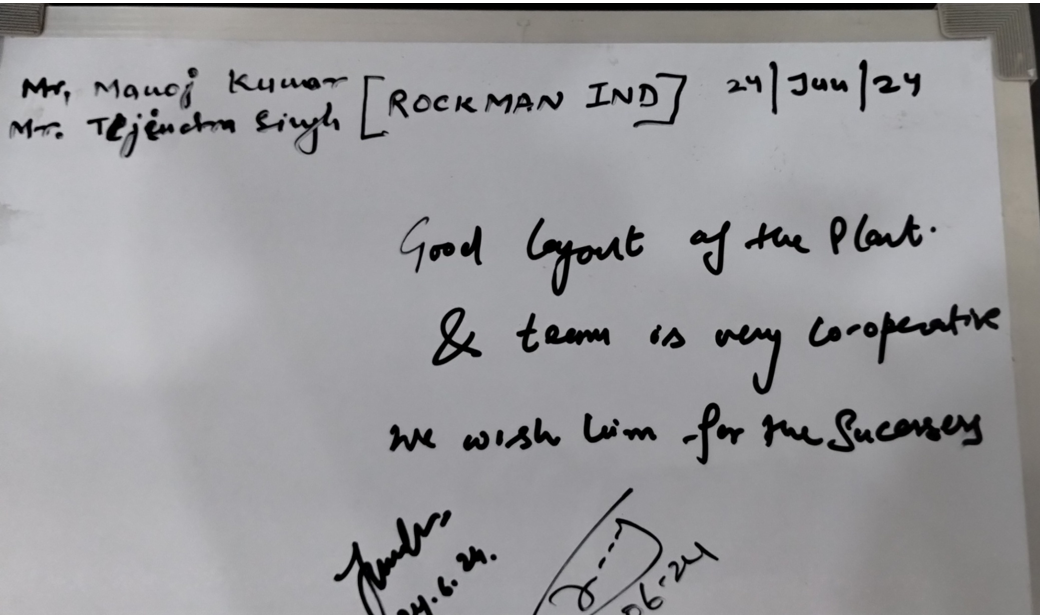 Mr. Manoj Kumar [ROCKMAN IND] 24/Jun/24
Mr. Tejendra Singh
Good layout of the Plant.
& team is very co-operative
we wish him for the Sucessess
24.6.24.
06-24